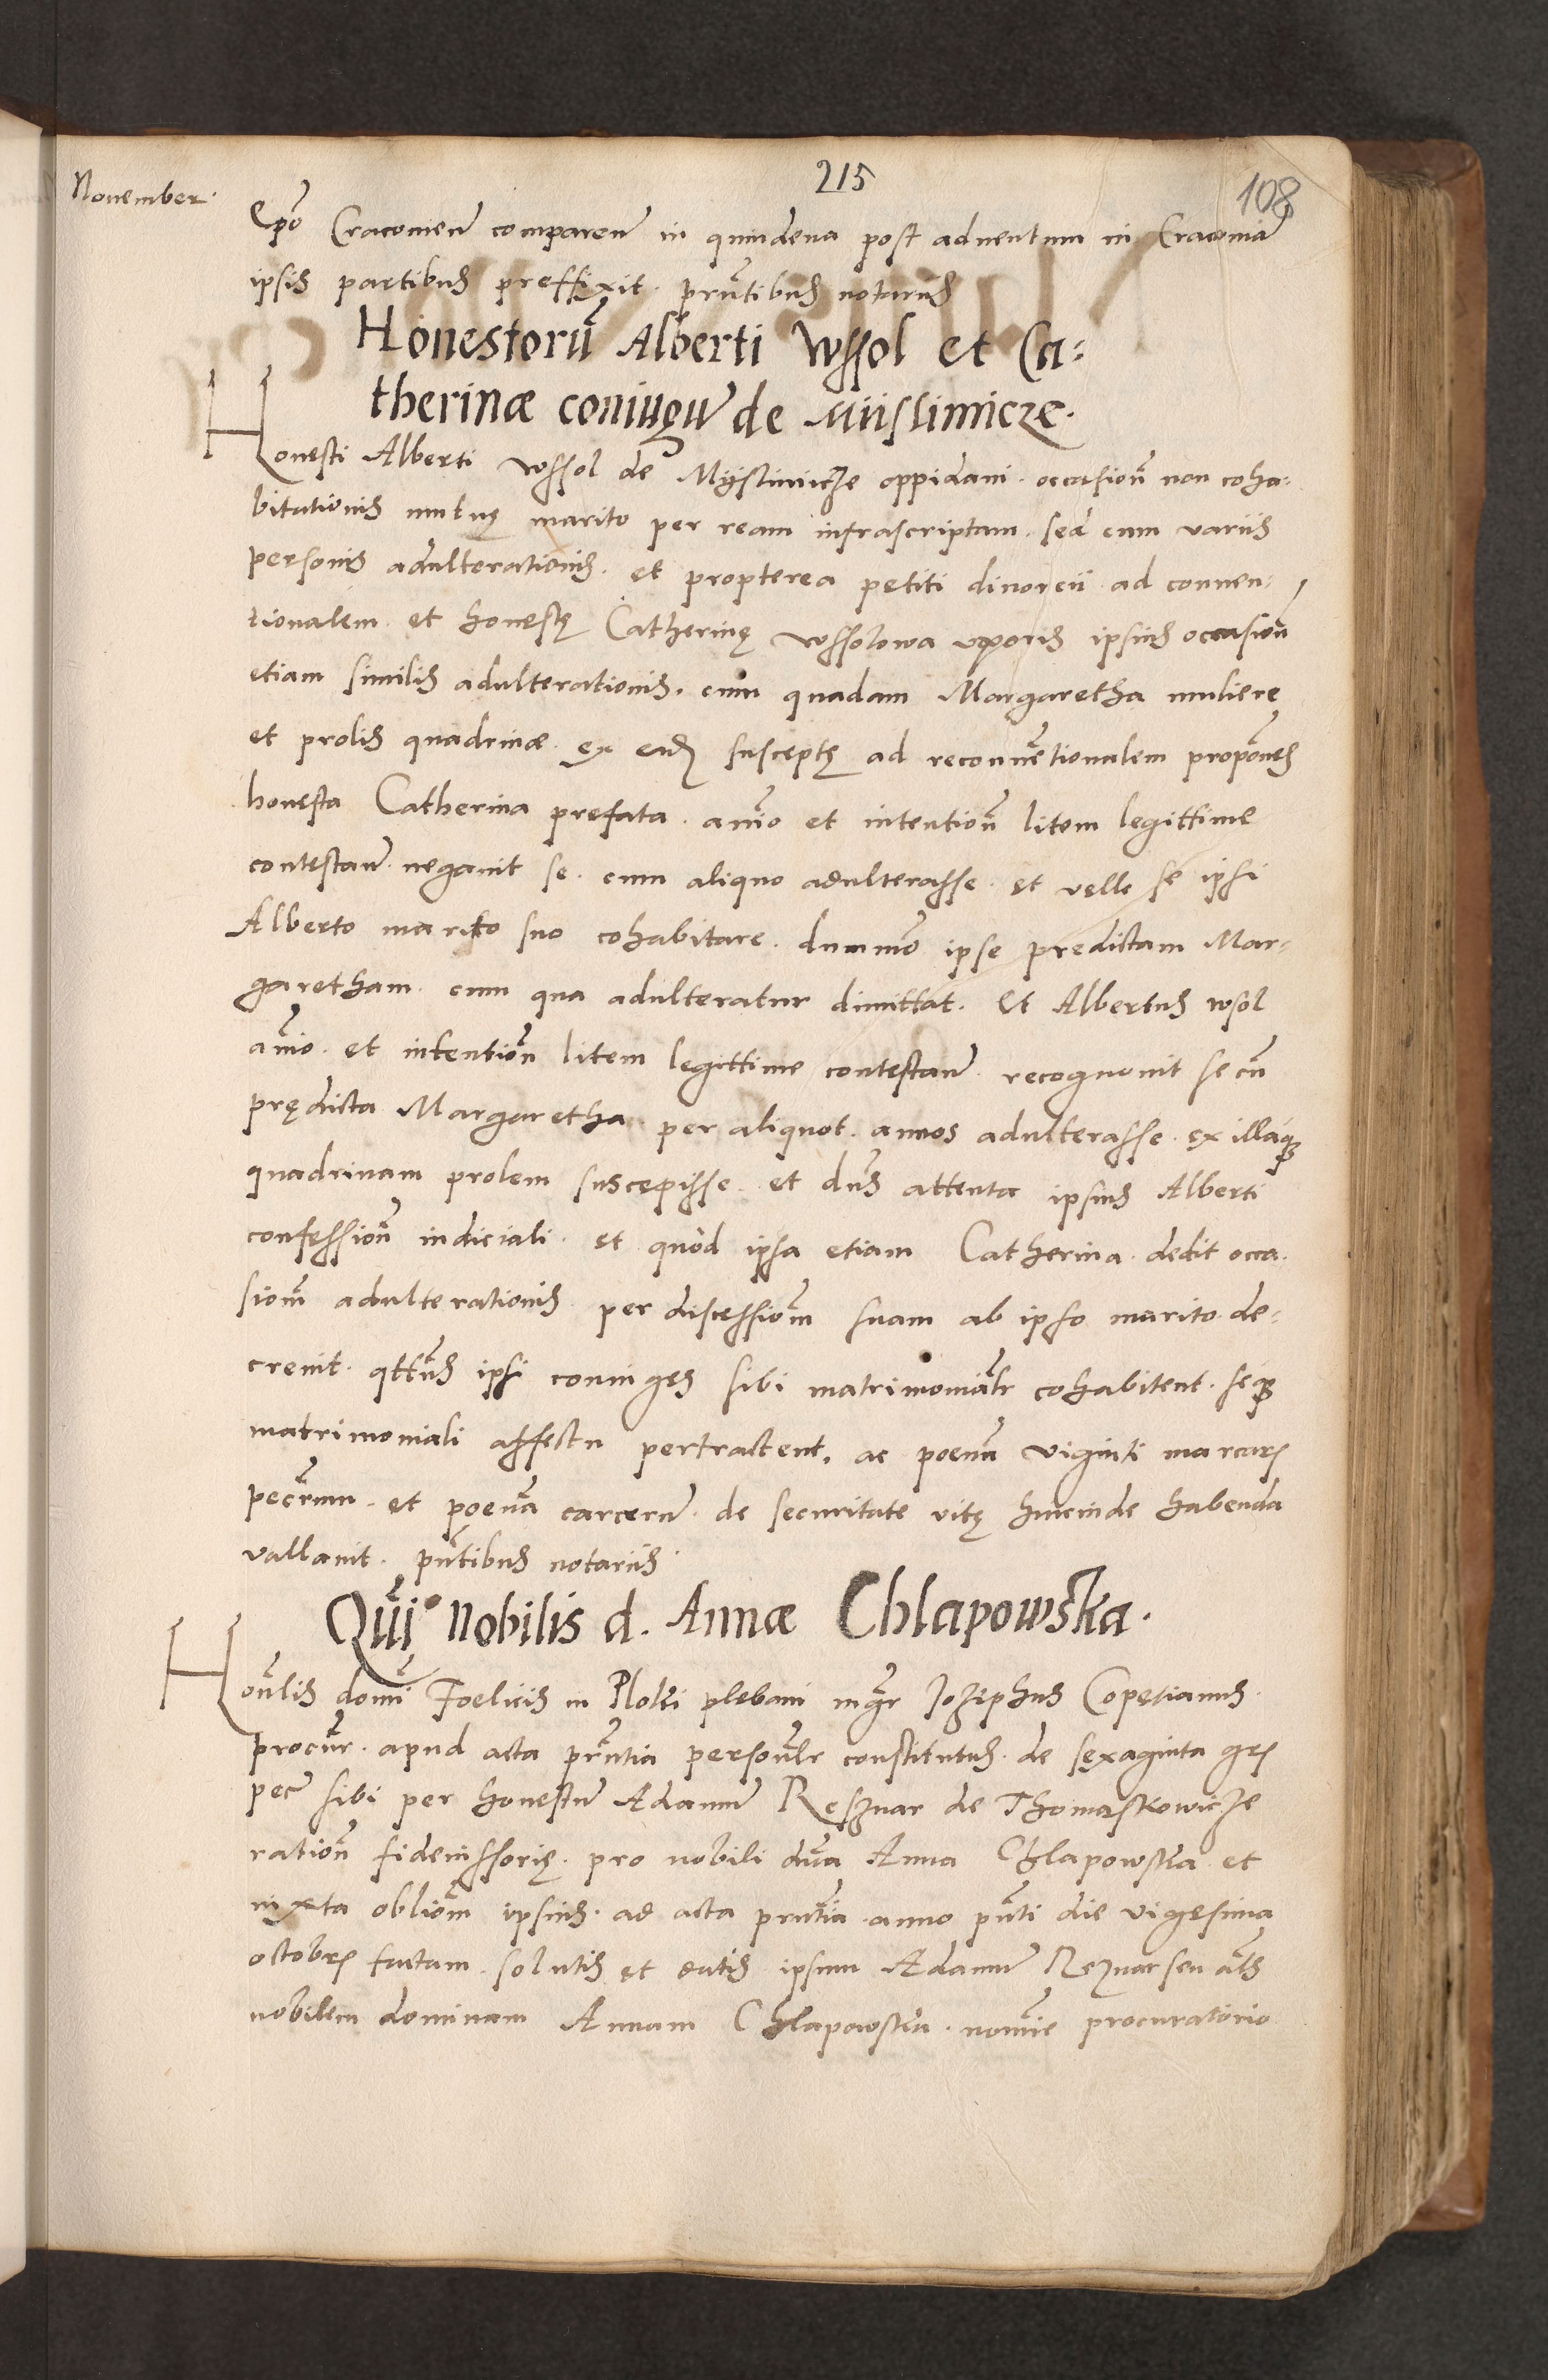 215
108
November.
Ep̃o Cracovien̄ comparen̄ in quindena post adventum in Cracoviā
ipsis partibus preffixit. prñtibus notariis
Honestorū Alberti Wssol et Ca=
therinæ coniugū de Miislimicze.
Honesti Alberti Wssol de Myslimicze oppidani. occasionē non coha=
bitationis mutuę marito per ream infrascriptam. sed cum variis
personis adulterationis. et propterea petiti divorcii ad conven=
tionalem. et honestę Catherinę Wssolowa uxoris ipsius occasionē
etiam similis adulterationis. cum quadam Margaretha muliere
et prolis quadrinæ. ex eadē susceptę ad reconvētionalem propōnes
honesta Catherina prefata. aīo et intentionē litem legittime
contestan̄. negavit se. cum aliquo adulterasse. et velle se ipsi
Alberto marito suo cohabitare. dummō ipse predictam Mar=
garetham. cum qua adulteratur dimittat. Et Albertus wsol
aīo. et intentionē litem legittime contestan̄. recognovit se cū
prędicta Margaretha per aliquot. annos adulterasse. ex illaq̨
quadrinam prolem suscepisse. et dñs attenta ipsius Alberti
confessionē iudiciali. et quòd ipsa etiam Catherina. dedit occa.
sionē adulterationis. per discessionē suam ab ipso marito. de=
crevit. qttn̄s ipsi coniuges sibi matrimoniālr cohabitent. seq̨
matrimoniali affectu pertractent. ac poenā viginti marcarꝝ
pecn̄rum. et poenā carcerū. de securitate vitę hincinde habenda
vallavit. pñtibus notariis.
Qūi nobilis d. Annæ Chlapowska.
Honlis domī Foelicis in Ploki plebani mgr̄ Iozephus Copetianus.
procūr. apud acta prñtia personlr constitutus. de sexaginta grꝝ
pec̄ sibi per honestū Adamū Resznar de Thomaskowicze
rationē fideiussorię. pro nobili dña Anna Chlapowska et
iuxta obliōm ipsius. ad acta prñtia. anno pñti die vigesima
octobrꝭ factam. solutis et datis ipsum Adamū Reznar seu ałs
nobilem dominam Annam Chlapowska. noīe procuratorio